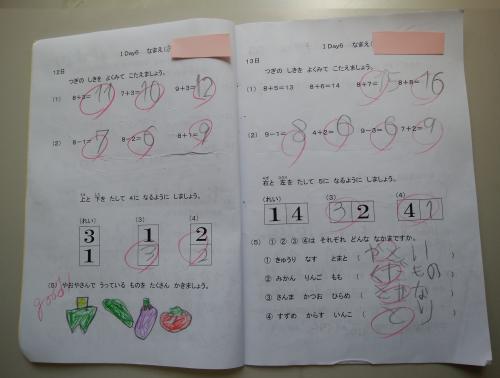 1 Day6 なまえ(
12日
つぎの しきを よくみて こたえましょう。
(1) 8+3=11 7+3=10 9+3=12
(2) 8-1=7 8-2=6 8+1=9
上と 下を たして 4に なるように しましょう。
(れい) (3) (4)
3 1 2
1 3 2
(5) やおやさんで うっている ものを たくさん かきましょう。
good!
1 Day6 なまえ(
13日
つぎの しきを よくみて こたえましょう。
(1) 8+5=13 8+6=14 8+7=15 8+8=16
(2) 9-1=8 4+2=6 9-3=6 7+2=9
右と 左を たして 5に なるように しましょう。
(れい) (3) (4)
1 4 3 2 4 1
(5) ① ② ③ ④は それぞれ どんな なかまですか。
① きゅうり なす とまと (やさい)
② みかん りんご もも (くだもの)
③ さんま かつお ひらめ (さかな)
④ すずめ からす いんこ (とり)